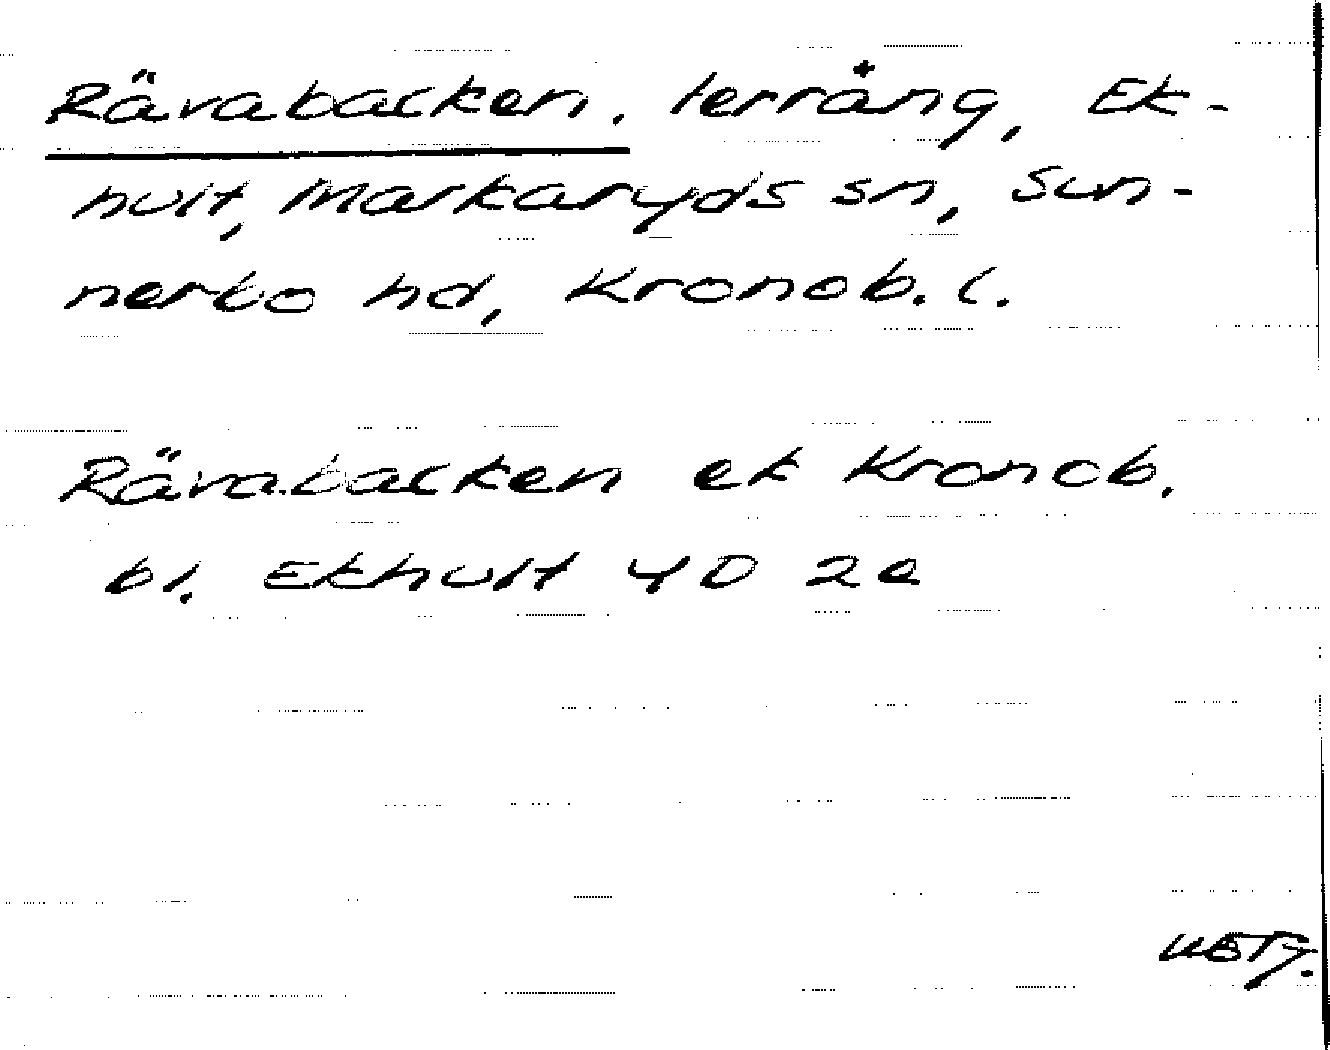 Rävabacken, terräng, Ek-
hult, Markaryds sn, Sun-
nerbo hd, Kronob. l.
Rävabacken ek Kronob.
bl. Ekhult 4D 2e